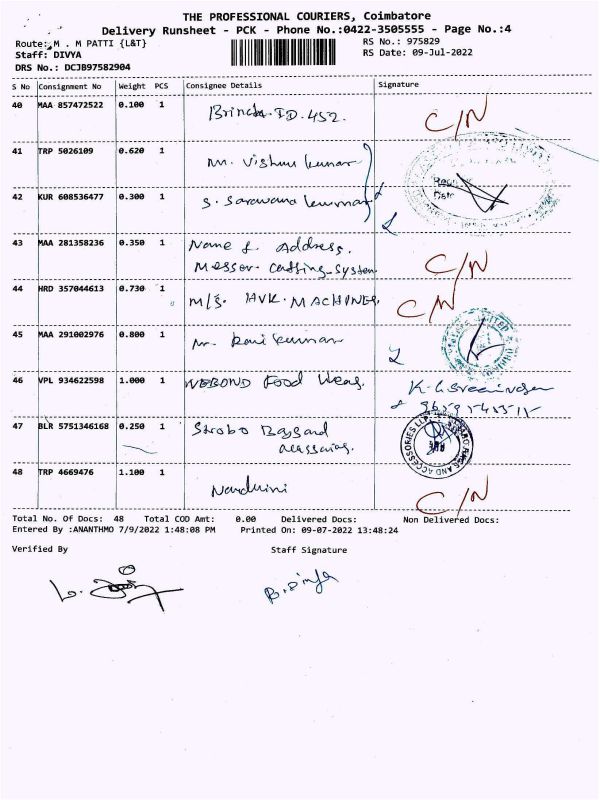 THE PROFESSIONAL COURIERS, Coimbatore
Delivery Runsheet - PCK - Phone No.:0422-3505555 - Page No.:4
Route: M . M PATTI {L&T} RS No.: 975829
Staff: DIVYA RS Date: 09-Jul-2022
DRS No.: DCJB97582904
S No Consignment No Weight PCS Consignee Details Signature
40 MAA 857472522 0.100 1 Brinda. ID. 452. C/N
41 TRP 5026109 0.620 1 Mr. Vishnu kumar
42 KUR 608536477 0.300 1 S. Saravana kumar
43 MAA 281358236 0.350 1 Name & Address.
Messer. Cutting. System C/N
44 HRD 357044613 0.730 1 M/s. HVK. MACHINES, C/N
45 MAA 291002976 0.800 1 Mr. Ravi kumar
46 VPL 934622598 1.000 1 Food
47 BLR 5751346168 0.250 1 Strobo
ACCESSORIES LLP
AND ACCESSORIES
48 TRP 4669476 1.100 1 Nandhini C/N
Total No. Of Docs: 48 Total COD Amt: 0.00 Delivered Docs: Non Delivered Docs:
Entered By :ANANTHMO 7/9/2022 1:48:08 PM Printed On: 09-07-2022 13:48:24
Verified By Staff Signature